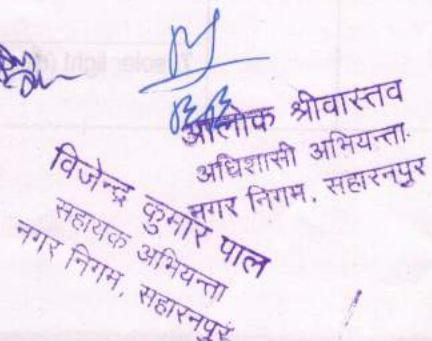 आलोक श्रीवास्तव
अधिशासी अभियन्ता
नगर निगम, सहारनपुर
विजेन्द्र कुमार पाल
सहायक अभियन्ता
नगर निगम, सहारनपुर